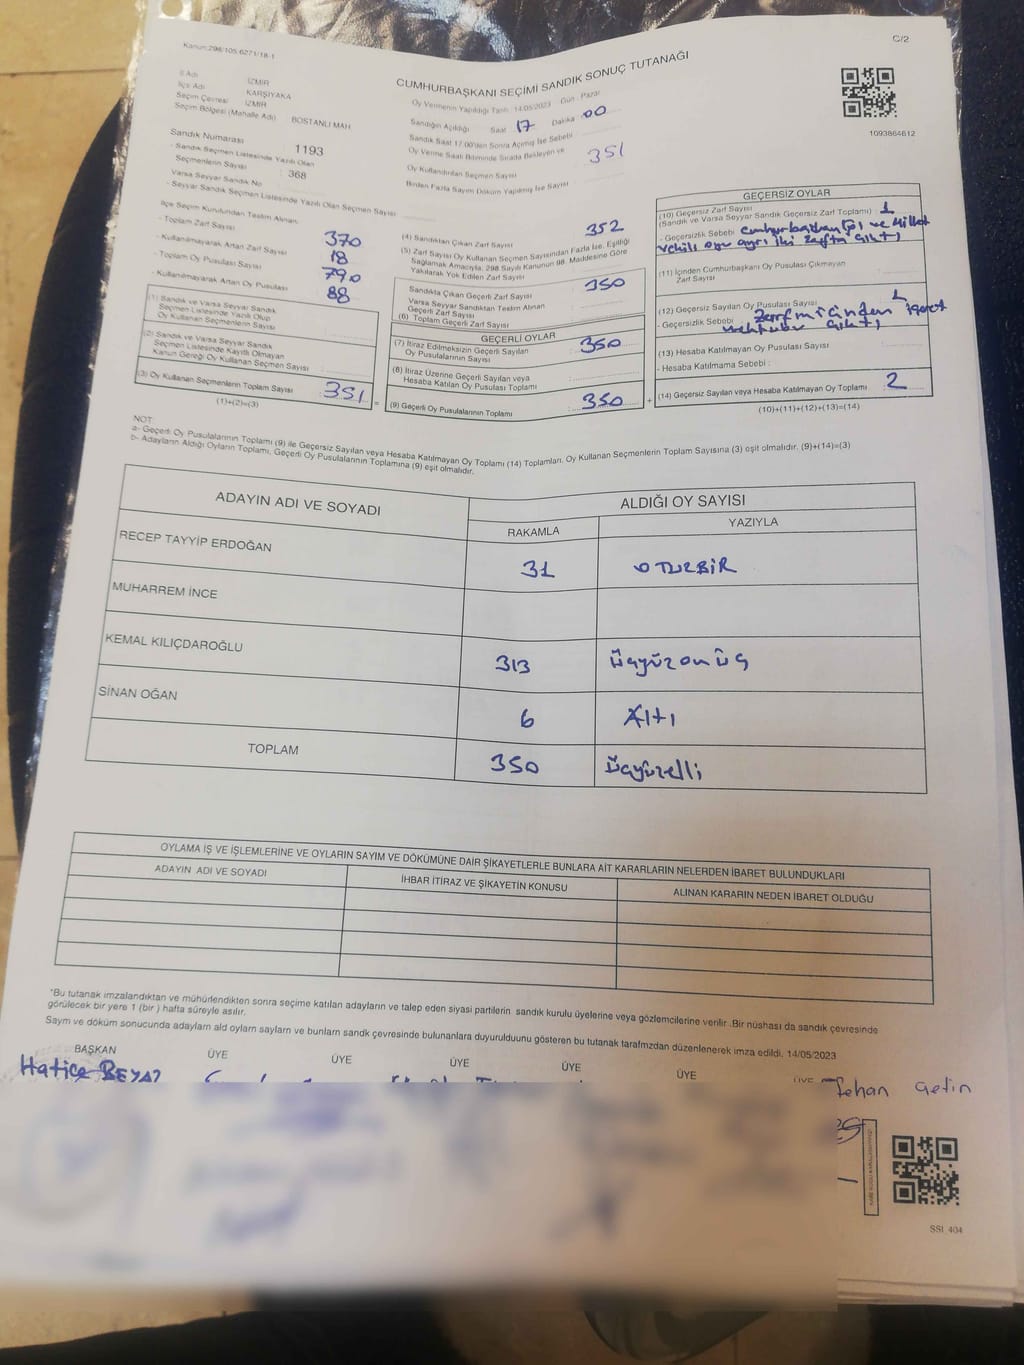 Kanun:298/105,6271/18-1
C/2
CUMHURBAŞKANI SEÇİMİ SANDIK SONUÇ TUTANAĞI
1093864612
İl Adı İZMİR
İlçe Adı KARŞIYAKA
Seçim Çevresi İZMİR
Seçim Bölgesi (Mahalle Adı) BOSTANLI MAH
Oy Vermenin Yapıldığı Tarih : 14/05/2023 Gün : Pazar
Sandığın Açıldığı Saat 17 Dakika 00
Sandık Saat 17.00'den Sonra Açılmış İse Sebebi
Oy Verme Saati Bitiminde Sırada Bekleyen ve
Oy Kullandırılan Seçmen Sayısı 351
Birden Fazla Sayım Döküm Yapılmış İse Sayısı
Sandık Numarası : 1193
- Sandık Seçmen Listesinde Yazılı Olan
Seçmenlerin Sayısı : 368
Varsa Seyyar Sandık No
- Seyyar Sandık Seçmen Listesinde Yazılı Olan Seçmen Sayısı
İlçe Seçim Kurulundan Teslim Alınan
- Toplam Zarf Sayısı 370
- Kullanılmayarak Artan Zarf Sayısı 18
- Toplam Oy Pusulası Sayısı 790
- Kullanılmayarak Artan Oy Pusulası 88
(1) Sandık ve Varsa Seyyar Sandık
Seçmen Listesinde Yazılı Olup
Oy Kullanan Seçmenlerin Sayısı
(2) Sandık ve Varsa Seyyar Sandık
Seçmen Listesinde Kayıtlı Olmayan
Kanun Gereği Oy Kullanan Seçmen Sayısı
(3) Oy Kullanan Seçmenlerin Toplam Sayısı : 351
(1)+(2)=(3)
(4) Sandıktan Çıkan Zarf Sayısı 352
(5) Zarf Sayısı Oy Kullanan Seçmen Sayısından Fazla İse, Eşitliği
Sağlamak Amacıyla, 298 Sayılı Kanunun 98. Maddesine Göre
Yakılarak Yok Edilen Zarf Sayısı
Sandıkta Çıkan Geçerli Zarf Sayısı : 350
Varsa Seyyar Sandıktan Teslim Alınan
Geçerli Zarf Sayısı
(6) Toplam Geçerli Zarf Sayısı
GEÇERLİ OYLAR
(7) İtiraz Edilmeksizin Geçerli Sayılan
Oy Pusulalarının Sayısı : 350
(8) İtiraz Üzerine Geçerli Sayılan veya
Hesaba Katılan Oy Pusulası Toplamı
(9) Geçerli Oy Pusulalarının Toplamı : 350
GEÇERSİZ OYLAR
(10) Geçersiz Zarf Sayısı
(Sandık ve Varsa Seyyar Sandık Geçersiz Zarf Toplamı) : 1
- Geçersizlik Sebebi : Cumhurbaşkanlığı ve Millet
vekili oyu ayrı iki zarfta çıktı
(11) İçinden Cumhurbaşkanı Oy Pusulası Çıkmayan
Zarf Sayısı
(12) Geçersiz Sayılan Oy Pusulası Sayısı : 1
- Geçersizlik Sebebi : Zarfın içinden işaret
mektubu çıktı
(13) Hesaba Katılmayan Oy Pusulası Sayısı
- Hesaba Katılmama Sebebi :
(14) Geçersiz Sayılan veya Hesaba Katılmayan Oy Toplamı 2
(10)+(11)+(12)+(13)=(14)
NOT
a- Geçerli Oy Pusulalarının Toplamı (9) ile Geçersiz Sayılan veya Hesaba Katılmayan Oy Toplamı (14) Toplamları, Oy Kullanan Seçmenlerin Toplam Sayısına (3) eşit olmalıdır. (9)+(14)=(3)
b- Adayların Aldığı Oyların Toplamı, Geçerli Oy Pusulalarının Toplamına (9) eşit olmalıdır.
ADAYIN ADI VE SOYADI ALDIĞI OY SAYISI
RAKAMLA YAZIYLA
RECEP TAYYİP ERDOĞAN 31 OTUZBİR
MUHARREM İNCE
KEMAL KILIÇDAROĞLU 313 üçyüzonüç
SİNAN OĞAN 6 Altı
TOPLAM 350 üçyüzelli
OYLAMA İŞ VE İŞLEMLERİNE VE OYLARIN SAYIM VE DÖKÜMÜNE DAİR ŞİKAYETLERLE BUNLARA AİT KARARLARIN NELERDEN İBARET BULUNDUKLARI
ADAYIN ADI VE SOYADI İHBAR İTİRAZ VE ŞİKAYETİN KONUSU ALINAN KARARIN NEDEN İBARET OLDUĞU
*Bu tutanak imzalandıktan ve mühürlendikten sonra seçime katılan adayların ve talep eden siyasi partilerin sandık kurulu üyelerine veya gözlemcilerine verilir. Bir nüshası da sandık çevresinde
görülecek bir yere 1 (bir) hafta süreyle asılır.
Sayım ve döküm sonucunda adayların ald oyların sayların ve bunların sandk çevresinde bulunanlara duyurulduunu gösteren bu tutanak tarafmzdan düzenlenerek imza edildi. 14/05/2023
BAŞKAN ÜYE ÜYE ÜYE ÜYE ÜYE ÜYE
Hatice BEYAZ
Çetin
SSI_404